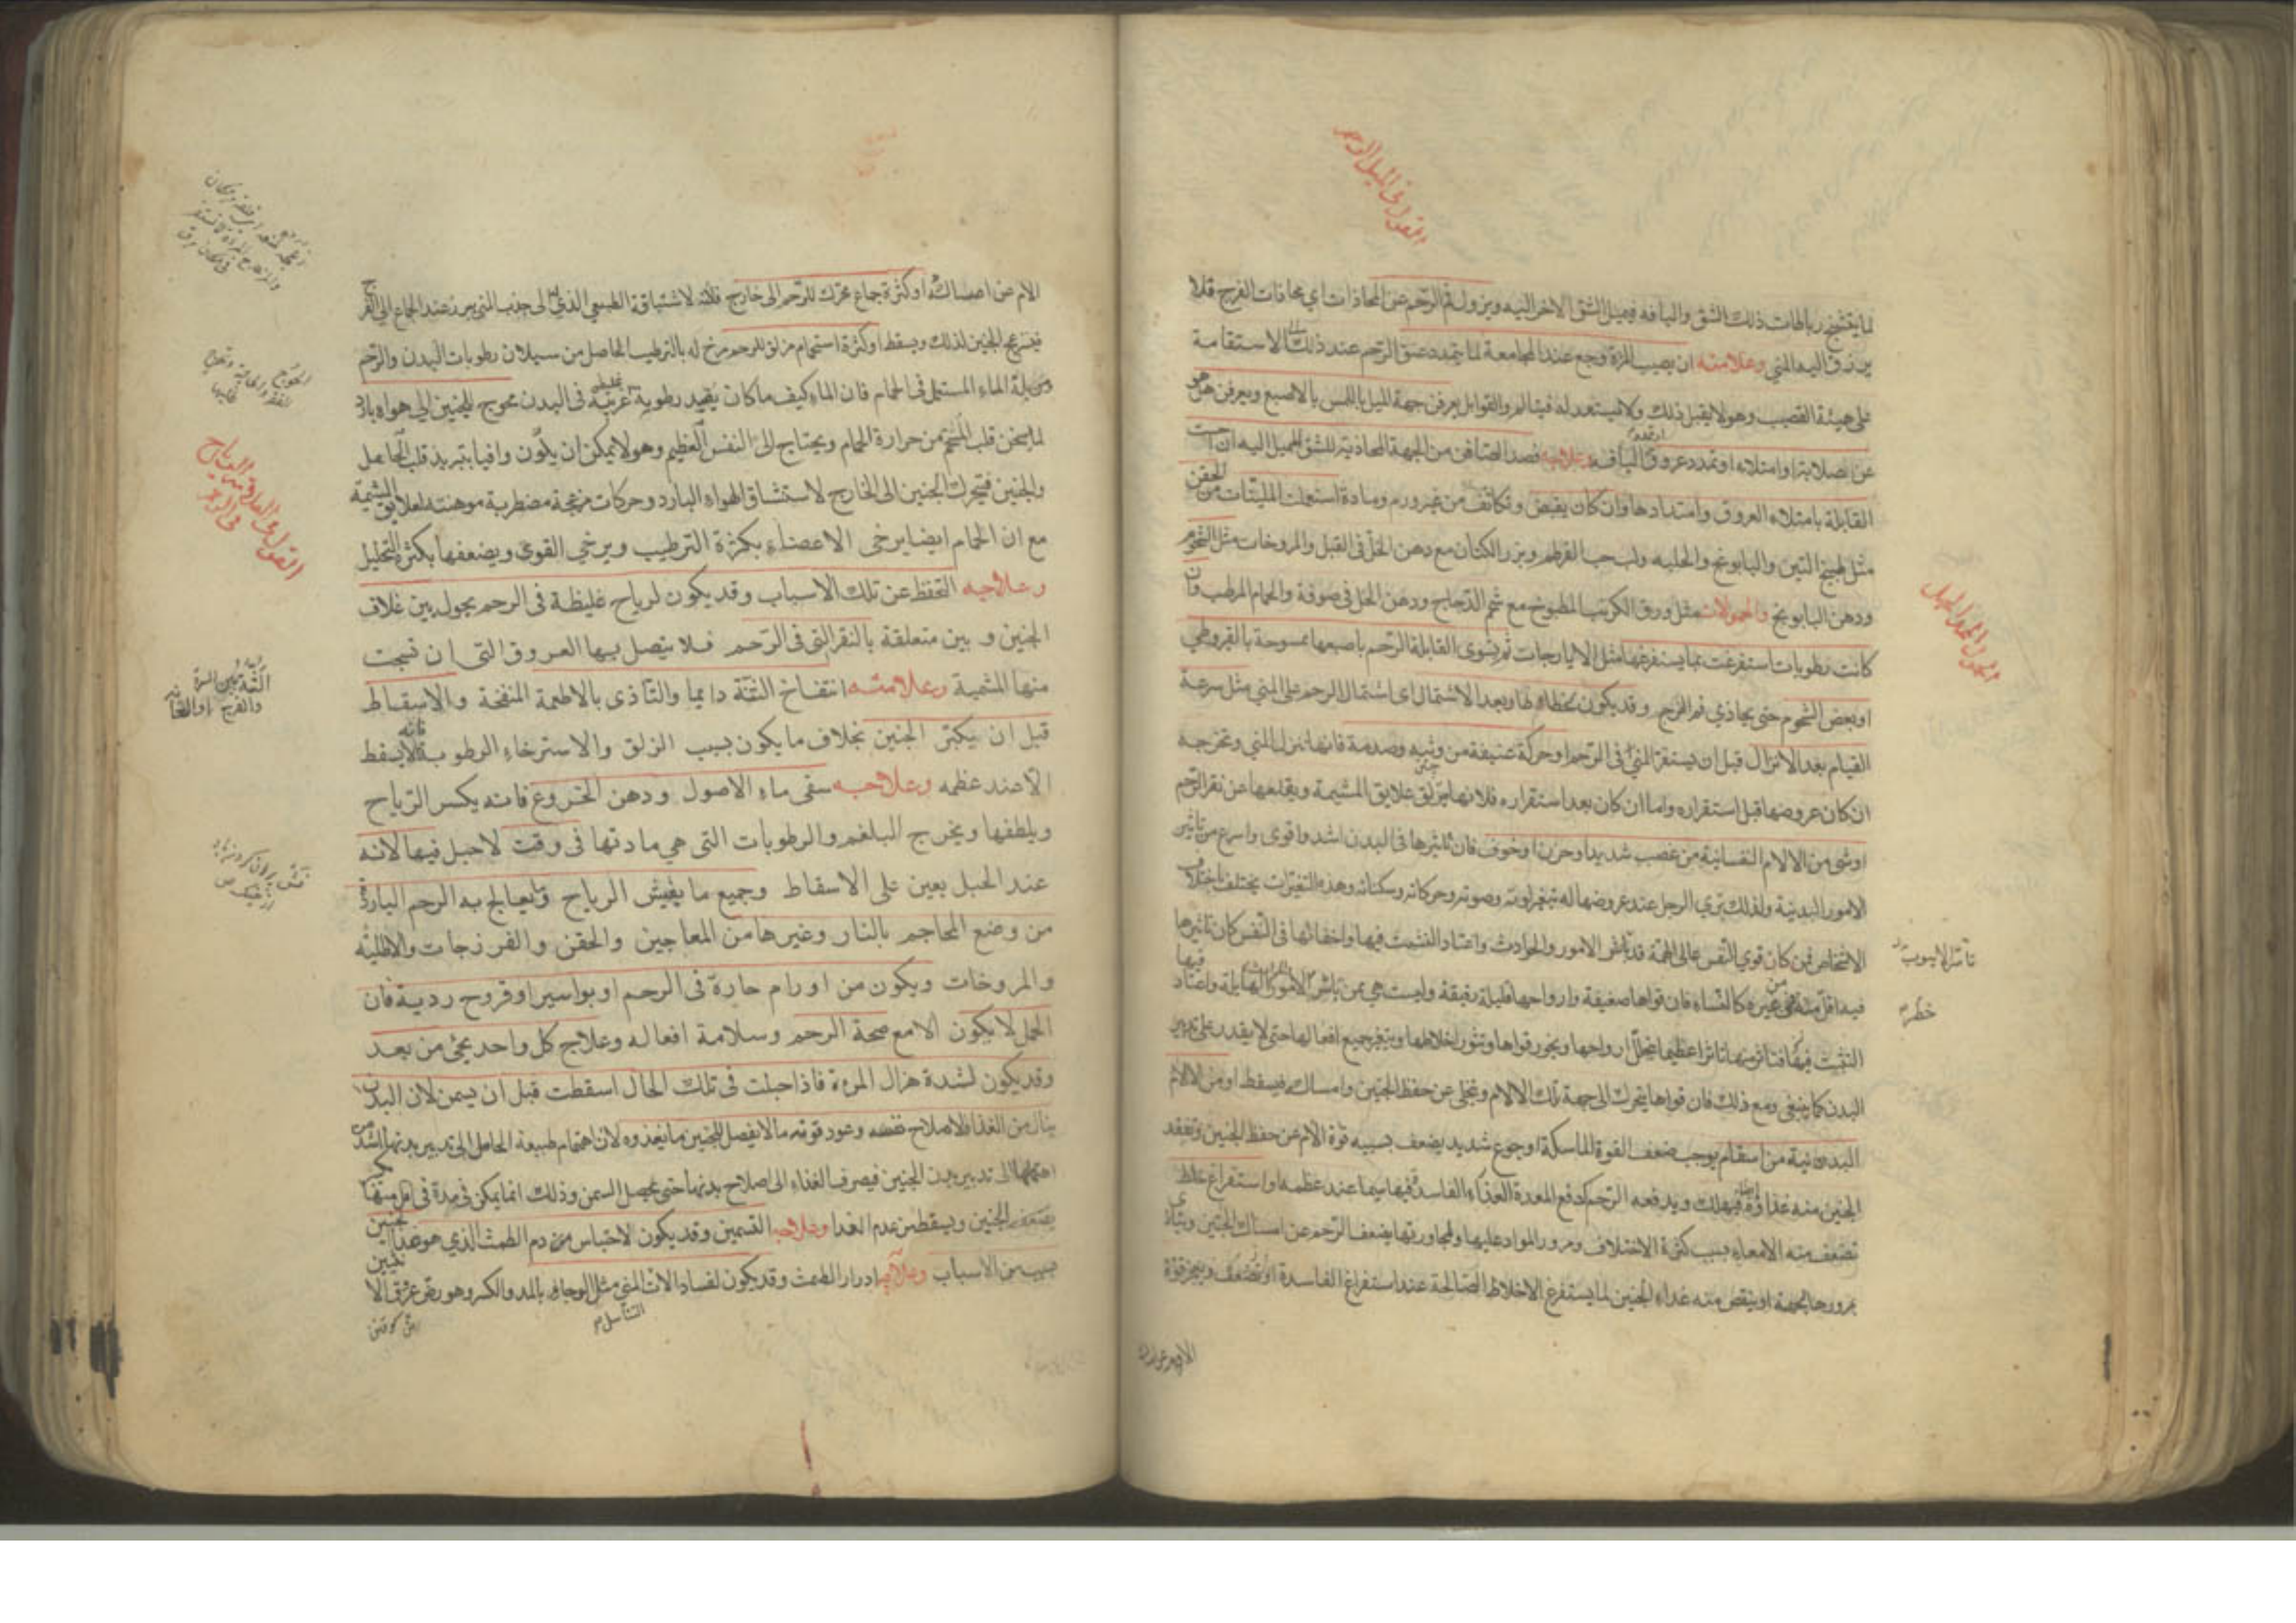 لما يتشنج رباطات ذلك الشق واليافه فيميل الشق الاخر اليه ويزول فم الرحم عن المحاذات اي محاذات الفرج فلا
ينزرق اليه المني وعلامته ان يصيب المرءة وجع عند المجامعة لما يتمدد عنق الرحم عند ذلك الاستقامة
على هيئة القضيب وهو لا يقبل ذلك ولا يستعد له فيتالم والقوابل يعرفن جهة الميل باللمس بالاصبع ويعرفن هل هو
عن صلابة او امتلاء او تمدد عروق واليافه وعلاجه فصد الصافن من الجهة المحاذية للشق المميل اليه ان احست
القابلة بامتلاء العروق وامتدادها وان كان بقبض وتكاثف من غير ورم ومادة استعملت الملينات من الحقن
مثل طبيخ التين والبابونج والحلبه ولب حب القرطم وبزر الكتان مع دهن الخل في القبل والمروخات مثل الشحوم
ودهن البابونج والحمولات مثل ورق الكرنب المطبوخ مع شحم الدجاج ودهن الخل في صوفة والحمام المرطب وان
كانت رطوبات استفرغت بما يستفرغها مثل الايارجات ثم يسوى القابلة الرحم باصبعها ممسوحة بالقيروطي
او بعض الشحوم حتى يحاذي فم الفرج وقد يكون لخطاء لها وبعد الاشتمال اى اشتمال الرحم على المني مثل سرعة
القيام بعد الانزال قبل ان يستقر المني في الرحم او حركة عنيفة من وثبه وصدمة فانها تنزل المني وتخرجه
ان كان عروضها قبل استقراره واما ان كان بعد استقراره فلانها يزلق علايق المشيمة ويقلعها عن نقر الرحم
او شى من الالام النفسانية من غضب شديد او حزن او خوف فان تاثيرها في البدن اشد واقوى واسرع من تاثير
الامور البدنية ولذلك ترى الرجل عند عروضها له تتغير لونه وصوته وحركاته وسكناته وهذه التغيرات يختلف باختلاف
الاشخاص فمن كان قوي النفس عالى الهمة قد باشر الامور والحوادث واعتاد التثبت فيها واخفائها في النفس كان تاثيرها
فيه اقل منه في غيره كالنساء فان قواها ضعيفة وارواحها قليلة رقيقة وليست هي ممن باشر الامور الهايلة واعتاد
التثبت فيها فتاثر منها تاثرا عظيما فيتحلل ارواحها ويخور قواها وتثور اخلاطها ويتغير جميع افعالها حتى لا يقدر على تدبير
البدن كما ينبغى ومع ذلك فان قواها يتحرك الى جهة تلك الالام ويتخلى عن حفظ الجنين وامساكه فيسقط او من الالام
البدنية من اسقام يوجب ضعف القوة الماسكة او جوع شديد يضعف بسببه قوة الام عن حفظ الجنين وتفقد
الجنين منه غذاؤه فيهلك ويدفعه الرحم كدفع المعدة الغذاء الفاسد فيها سيما عند عظمه او استفراغ خلط
تضعف منه الامعاء بسبب كثرة الاختلاف ومرور المواد عليها ولمجاورتها يضعف الرحم عن امساك الجنين ويتاذى
بمرورها بجهته او ينقص منه غذاء الجنين لما يستفرغ الاخلاط الصالحة عند استفراغ الفاسدة او تضعف ويعجز قوة
خطر
الام عن امساكه او كثرة جماع محرك للرحم الى خارج فلانه لاشتياقه الطبيعي الذي له الى جذب المني يبرز عند الجماع الى الفرج
فينزعج الجنين لذلك ويسقط او كثرة استحمام مزلق للرحم مرخ له بالترطيب الحاصل من سيلان رطوبات البدن والرحم
ومن بلة الماء المستعمل في الحمام فان الماء كيف ما كان يفيد رطوبة غريبة في البدن محوج للجنين الى هواء بارد
لما يسخن قلب المستحم من حرارة الحمام ويحتاج الى النفس العظيم وهو لا يمكن ان يكون وافيا بتبريد قلب الحامل
والجنين فيتحرك الجنين الى الخارج لاستنشاق الهواء البارد وحركات مزعجة مضطربة موهنة لعلايق المشيمة
مع ان الحمام ايضا يرخى الاعضاء بكثرة الترطيب ويرخي القوى ويضعفها بكثرة التحليل
وعلاجه التحفظ عن تلك الاسباب وقد يكون لرياح غليظة في الرحم يحول بين غلاف
الجنين و بين متعلقة بالنقر التي في الرحم فلا يتصل بها العروق التي ان نسجت
منها المشمية وعلامته انتفاخ الثنة دايما والتاذى بالاطعمة المنفخة والاسقاط
قبل ان يكبر الجنين بخلاف ما يكون بسبب الزلق والاسترخاء الرطوبة فانه لا يسقط
الا عند عظمه وعلاجه سقى ماء الاصول ودهن الخروع فانه يكسر الرياح
ويلطفها ويخرج البلغم والرطوبات التى هي مادتها فى وقت لا حبل فيها لانه
عند الحبل يعين على الاسقاط وجميع ما يفش الرياح وما يعالج به الرحم البارد
من وضع المحاجم بالنار وغيرها من المعاجين والحقن والفرزجات والاطلية
والمروخات ويكون من اورام حارة فى الرحم او بواسير او قروح ردية فان
الحمل لا يكون الا مع صحة الرحم وسلامة افعاله وعلاج كل واحد يجئ من بعد
وقد يكون لشدة هزال المرءة فاذا حبلت فى تلك الحال اسقطت قبل ان يسمن لان البدن
ينال من الغذاء لاصلاح نفسه وعود قوته ما لا يفصل للجنين ما يغذوه لان اهتمام طبيعة الحامل الى تدبير بدنها اشد من
اهتمامها الى تدبير بدن الجنين فيصرف الغذاء الى اصلاح بدنها حتى يحصل السمن وذلك انما يمكن في مدة في اقل منها
يضعف الجنين ويسقط من عدم الغذا وعلاجه التسمين وقد يكون لاحتباس من دم الطمث الذي هو غذا الجنين
بسبب من الاسباب وعلاجه ادرار الطمث وقد يكون لفساد الات المني مثل الوجاء بالمد والكسر وهو رض عرق الا
التناسل